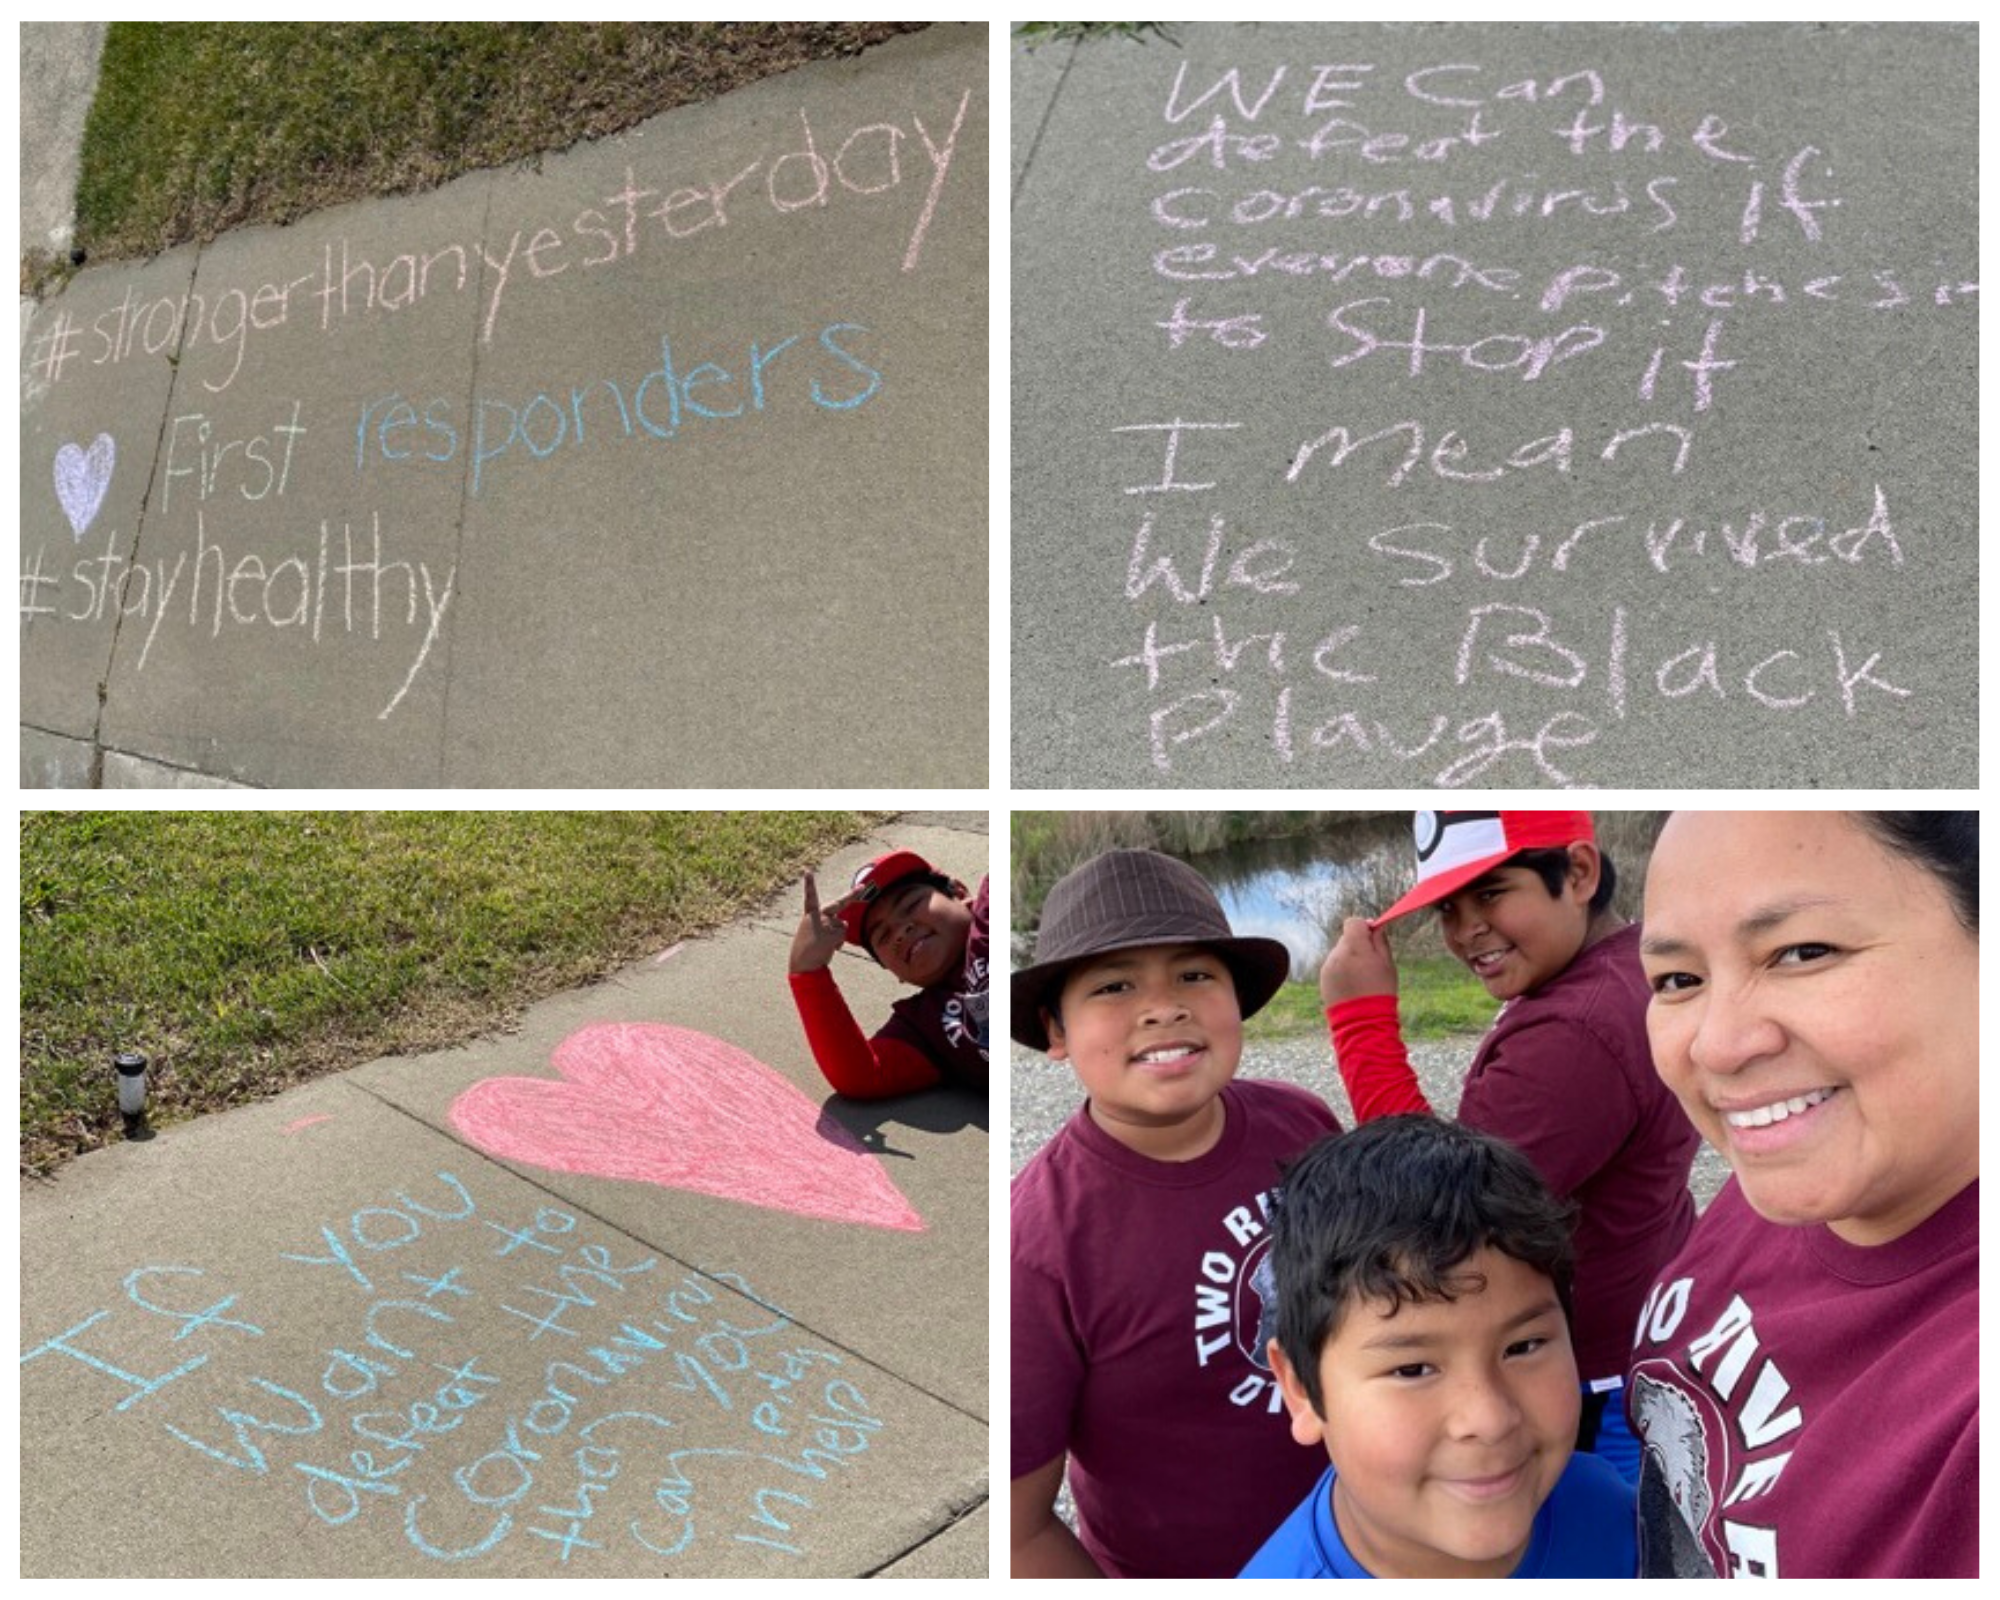 #strongerthanyesterday
First responders
#stayhealthy
WE Can
defeat the
coronavirus if
everyone pitches in
to Stop it
I mean
We survived
the Black
Plauge
If you
want to
defeat the
Coronavirus
then you
can pitch
in help
TWO
TWO RI
OT
WO RIVE